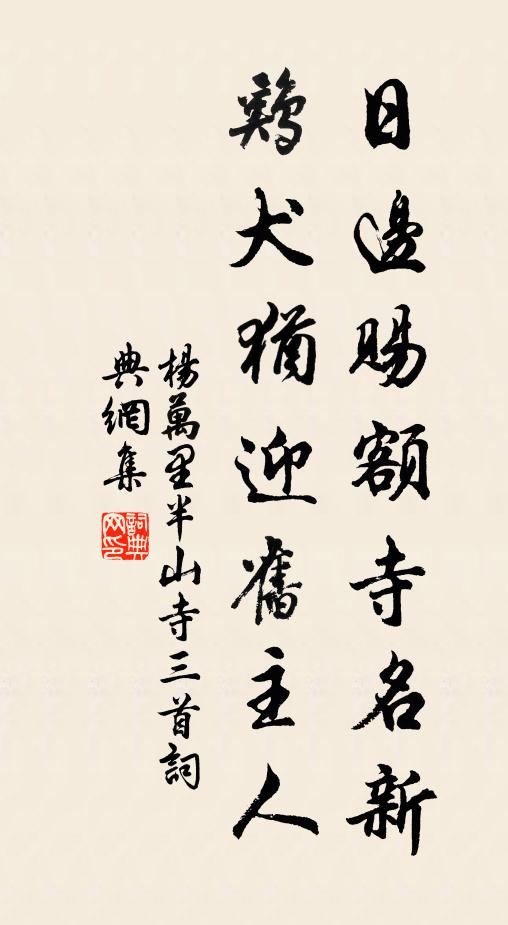 日邊賜額寺名新
鷄犬猶迎舊主人
楊萬里半山寺三首詞
典網集
詞典
网印